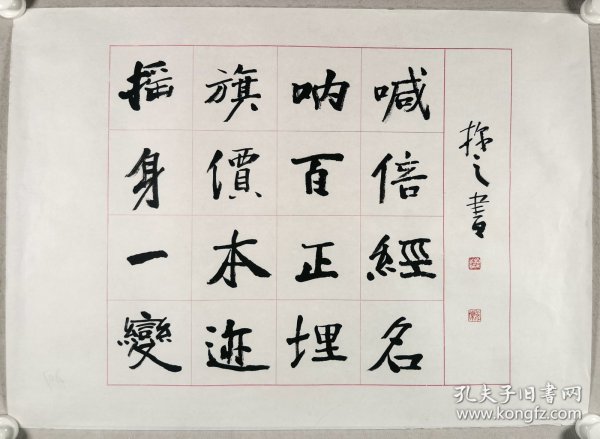 摇旗呐喊
身價百倍
一本正經
變迹埋名
之書
孔夫子旧书网
www.kongfz.com